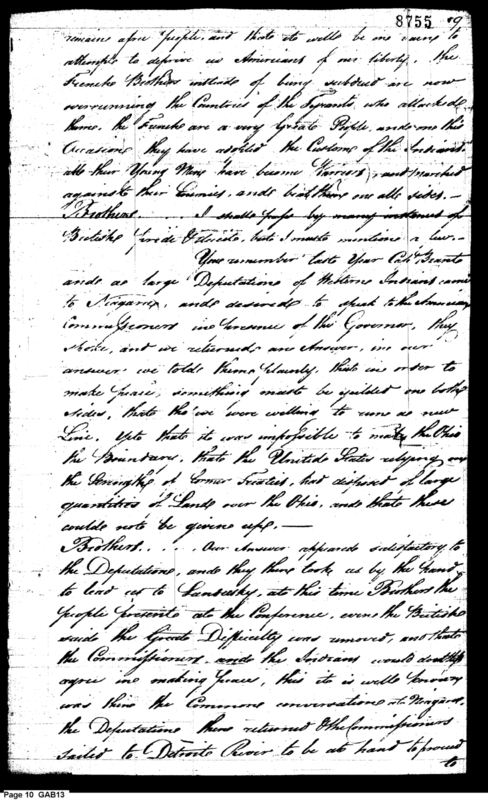 8755
remain a free people, and that it will be in vain to
attempt to deprive us Americans of our liberty, the
French Brothers instead of being subdued are now
overrunning the Countries of the Tyrants who attacked
them, the French are a very Great People, and on this
Occasion they have adopted the Customs of the Indians
all their Young Men have become Warriors, and marched
against their Enemies, and beat them on all sides. —
Brothers . . . . I shall pass by many instances of
British pride & deceit, but I must mention a few. —
You remember last Year Capt. Brant
and a large Deputation of Western Indians came
to Niagara, and desired to speak to the American
Commissioners in presence of the Governor, they
spoke, and we returned an Answer, in our
answer we told them plainly, that in order to
make peace, something must be yielded on both
sides, that tho' we were willing to run a new
Line, yet that it was impossible to make the Ohio
the Boundary, that the United States relying on
the Strength of former Treaties, had disposed of large
quantities of Lands over the Ohio, and that these
could not be given up. —
Brothers . . . . Our Answer appeared satisfactory to
the Deputation, and they then took us by the hand
to lead us to Sandusky, at this time Brothers the
people present at the Conference, even the British
said the Great Difficulty was removed, and that
the Commissioners and the Indians would doubtless
agree in making peace, this it is well known
was then the Common conversation at Niagara,
the Deputation then returned & the Commissioners
sailed to Detroit River to be at hand to proceed
to
Page 10 GAB13